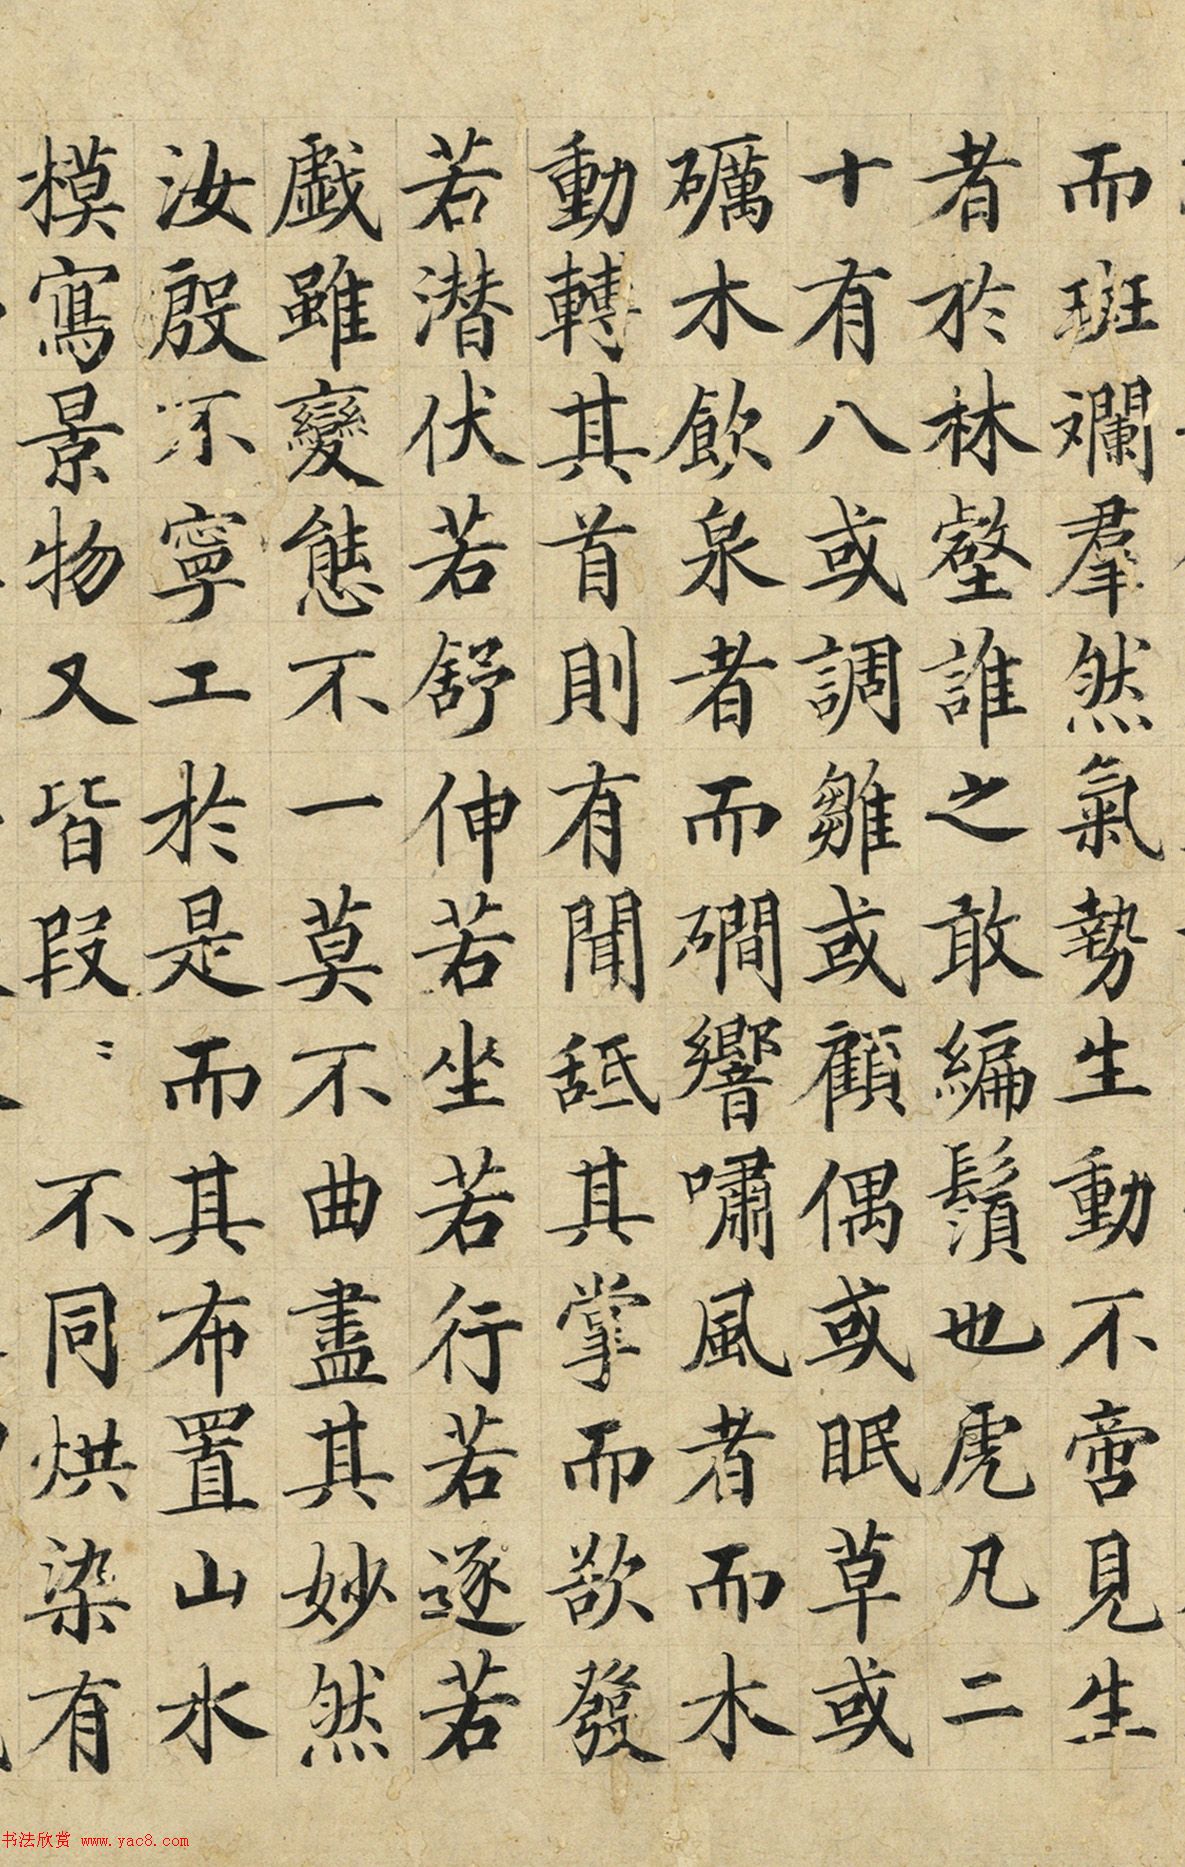 而斑斕羣然氣勢生動不啻見生
者於林壑誰之敢編鬚也虎凡二
十有八或調雛或顧偶或眠草或
礪木飲泉者而磵響嘯風者而木
動轉其首則有聞舐其掌而欲發
若潛伏若舒伸若坐若行若逐若
戲雖變態不一莫不曲盡其妙然
汝殷不寧工於是而其布置山水
模寫景物又皆段〻不同烘染有
书法欣赏 www.yac8.com